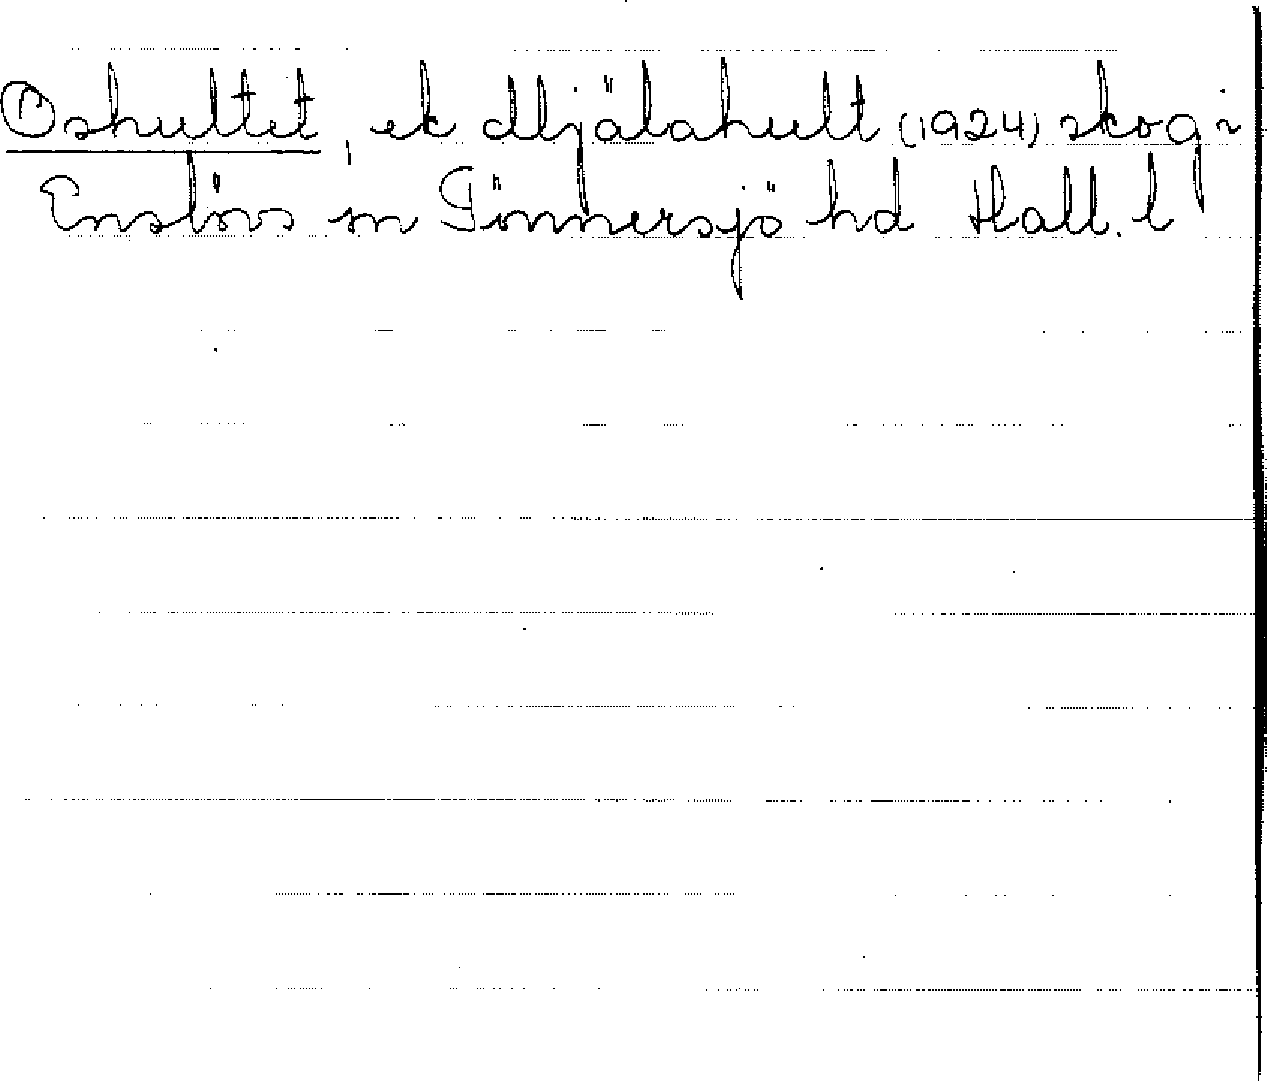 Oshultet, ek Mjälahult (1924) skog i
Enslövs sn Tönnersjö hd Hall. l